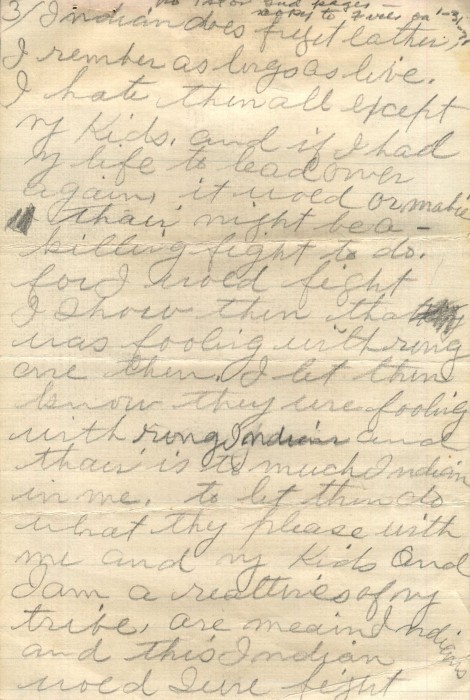 no 1st or 2nd pages -
3/ Indian does
I rember as longs as live.
I hate then all except
my Kids, and if I had
my life to lead over
again, it wold or mabie
thair might be a -
killing fight to do.
for I wold fight
I show then that
was fooling with rong
one then. I let then
know they ure fooling
with rong Indian and
thair is to much Indian
in me. to let then do
what thy please with
me and my Kids and
I am a realtives of my
tribe, are meain Indians
and this Indian
wold sure fight